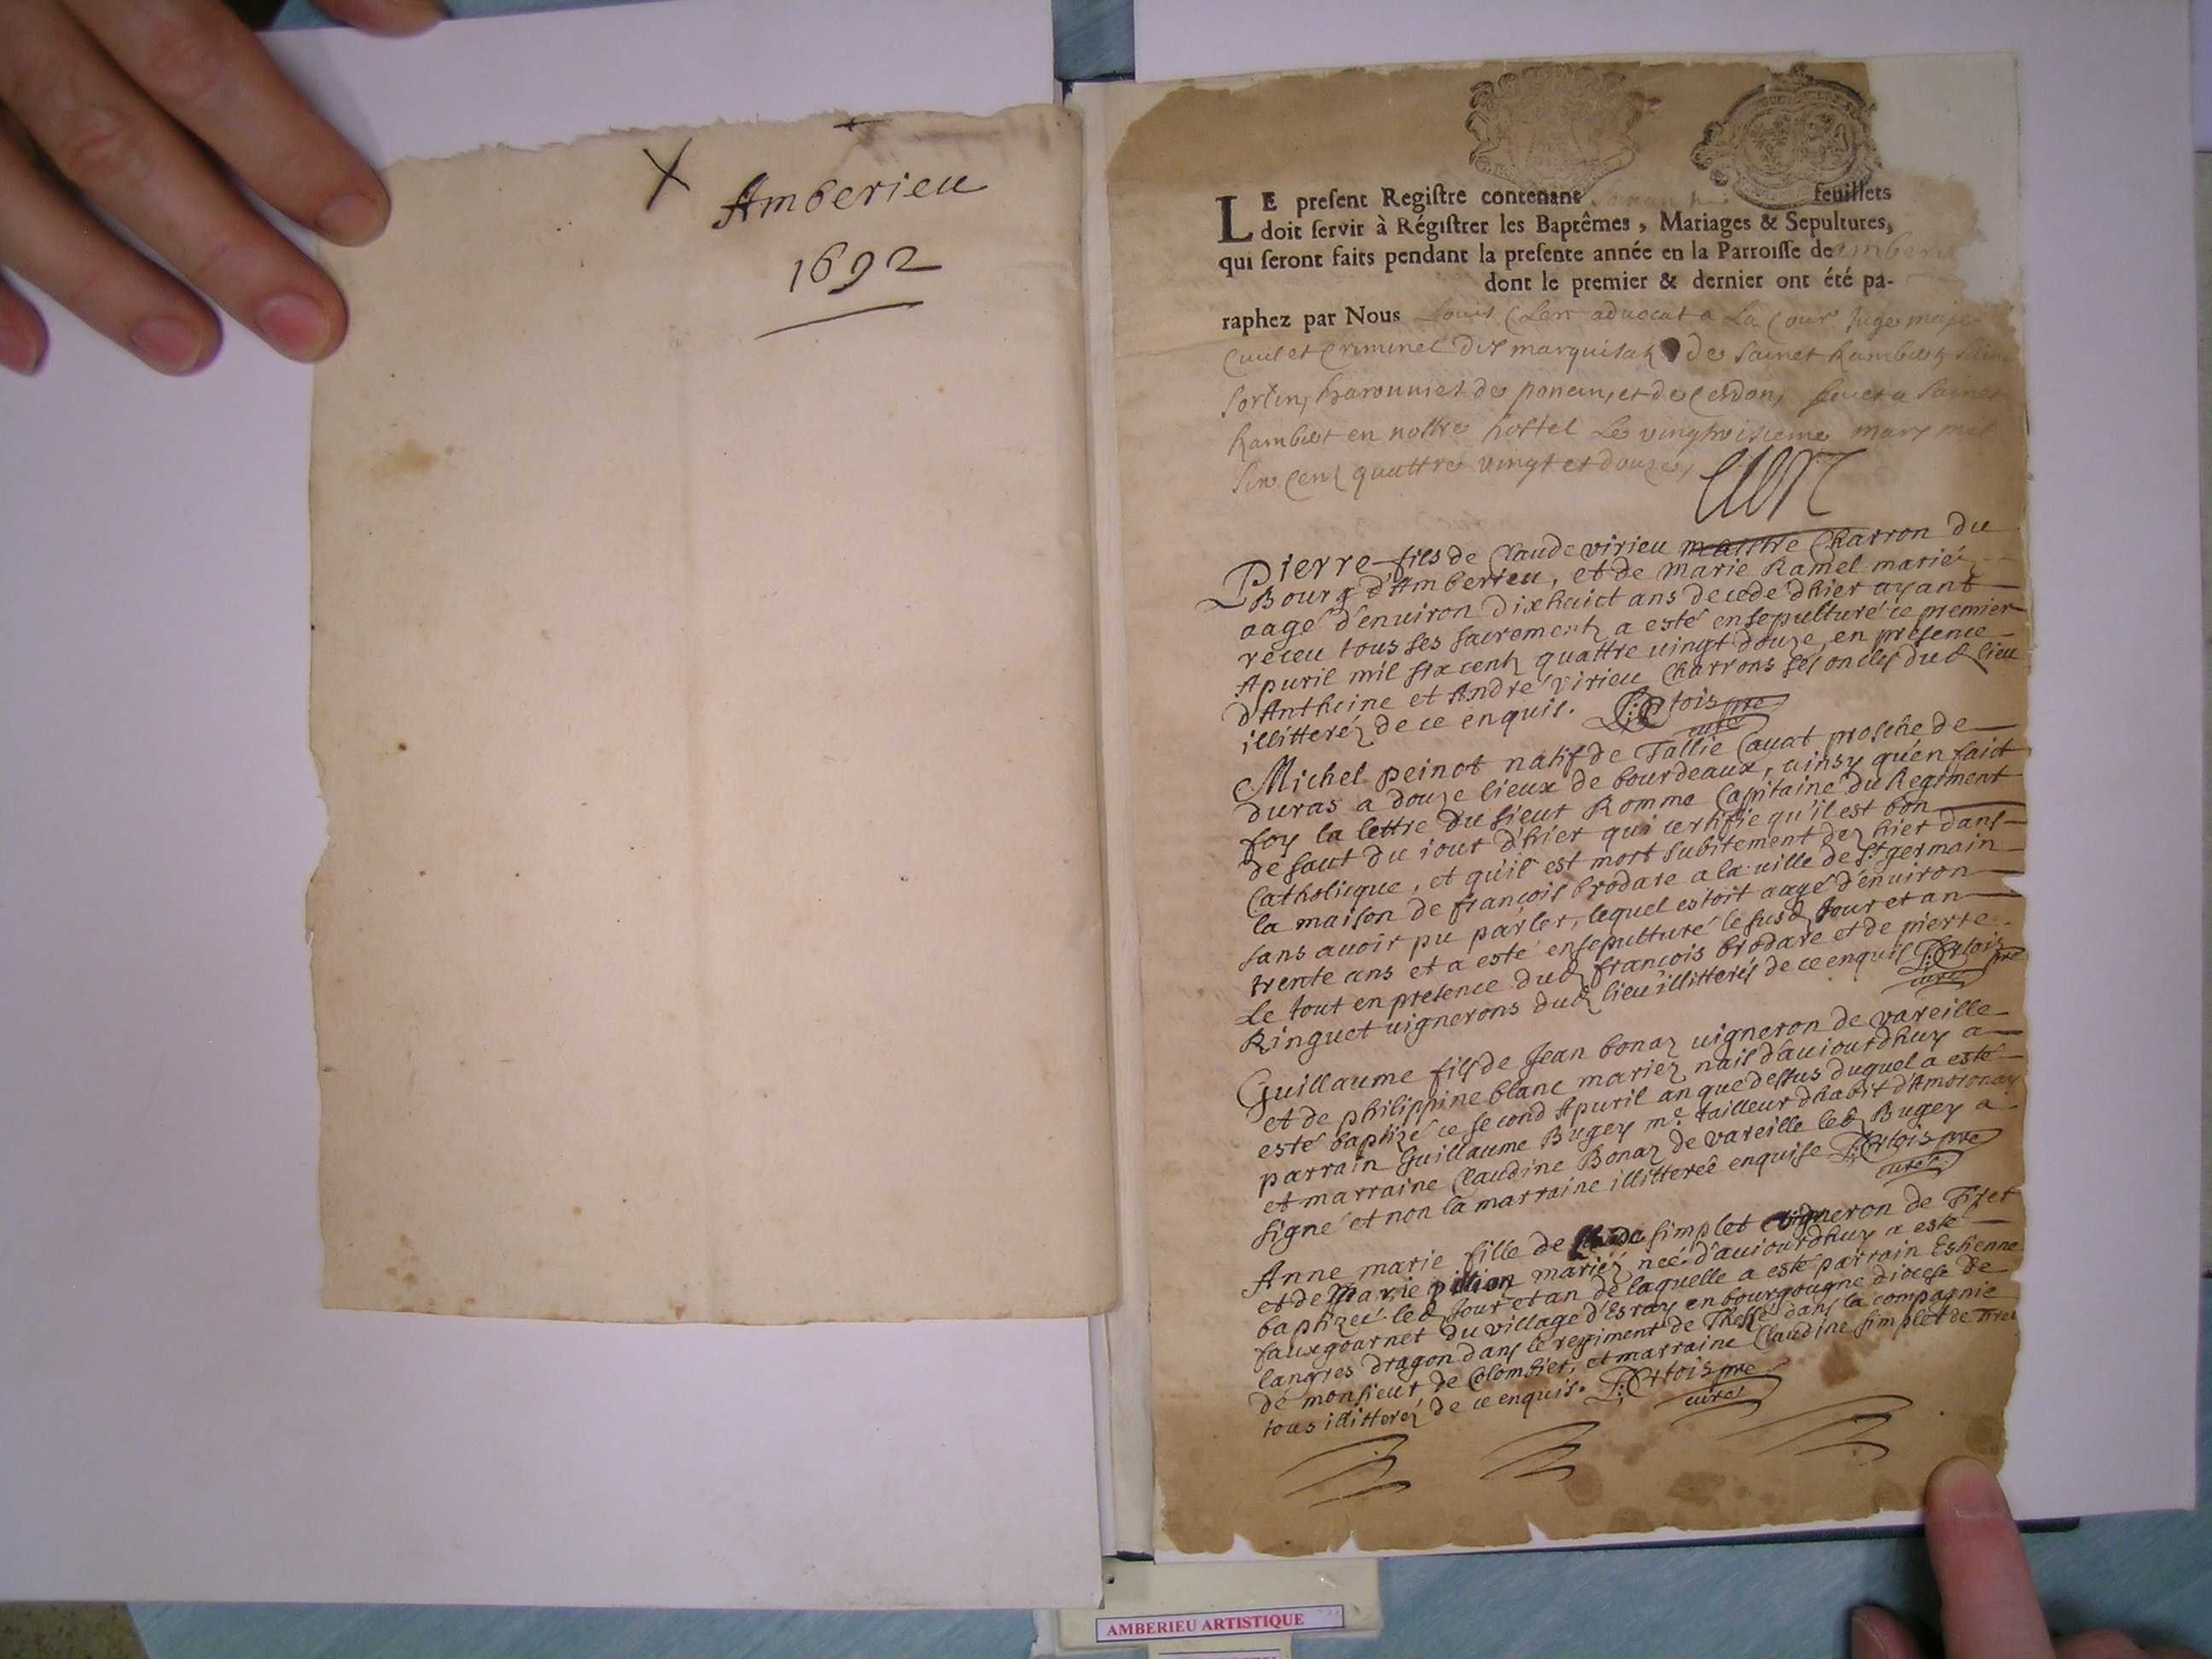 Amberieu
1692
LE present Registre contenant feuillets
doit servir à Régistrer les Baptêmes, Mariages & Sepultures,
qui seront faits pendant la presente année en la Parroisse de Amberieu
dont le premier & dernier ont été pa-
raphez par Nous Louis Clerc advocat a La Cour Juge maje
Civil et Criminel du marquisat de Sainct Rambert, Sainct
Sorlin, baronnies de poncin, et de Cerdon, a Sainct
Rambert en nostre hostel Le vingtroisieme mars mil
Six Cent quattre vingt et douze,
Clerc
Pierre fils de Claude virieu maittre Charron du
Bourg d'Amberieu, et de Marie Ramel mariéz
aagé d'enuiron dixhuict ans decedé d'hier ayant
receu tous ses sacrements a esté ensepulturé ce premier
Apuril mil six cents quattre vingt douze en présence
d'Anthoine et André Virieu Charrons ses oncles dud lieu
illitteréz de ce enquis. pre
curé
Michel peinot natif de Tallie Cauat prosche de
duras a douze lieux de bourdeaux, ainsy qu'en faict
foy la lettre du sieur Romme Capitaine du Regiment
de saut du iour d'hier qui certifie qu'il est bon
Catholicque, et qu'il est mort subitement dez hier dans
la maison de françois brodare a la uille de St germain
sans auoir pu parler, lequel estoit aagé d'enuiron
trente ans et a esté ensepulturé le susd Jour et an
Le tout en presence dud françois brodare et de pierre
Ringuet uignerons dud lieu illitterés de ce enquis pre
curé
Guillaume fils de Jean bonaz uigneron de vareille
et de philippine blanc mariez nais d'auiourdhuy a
esté baptizé ce second Apuril an que dessus duquel a esté
parrain Guillaume Bugey me tailleur dhabit d'Amoronay
et marraine Claudine Bonaz de vareille led Bugey a
signé et non la marraine illitterée enquise pre
curé
Anne marie fille de Claude simplet vigneron de Tiret
et de Marie pillion mariéz née d'auiourdhuy a esté
baptizée led Jour et an de laquelle a esté parrain Estienne
fauxgournet du village d'Esray en bourgougne diocese de
langres dragon dans le regiment de Thessé dans la compagnie
de monsieur de Colombier, et marraine Claudine simplet de Tiret
tous illitteréz de ce enquis. pre
curé
AMBERIEU ARTISTIQUE